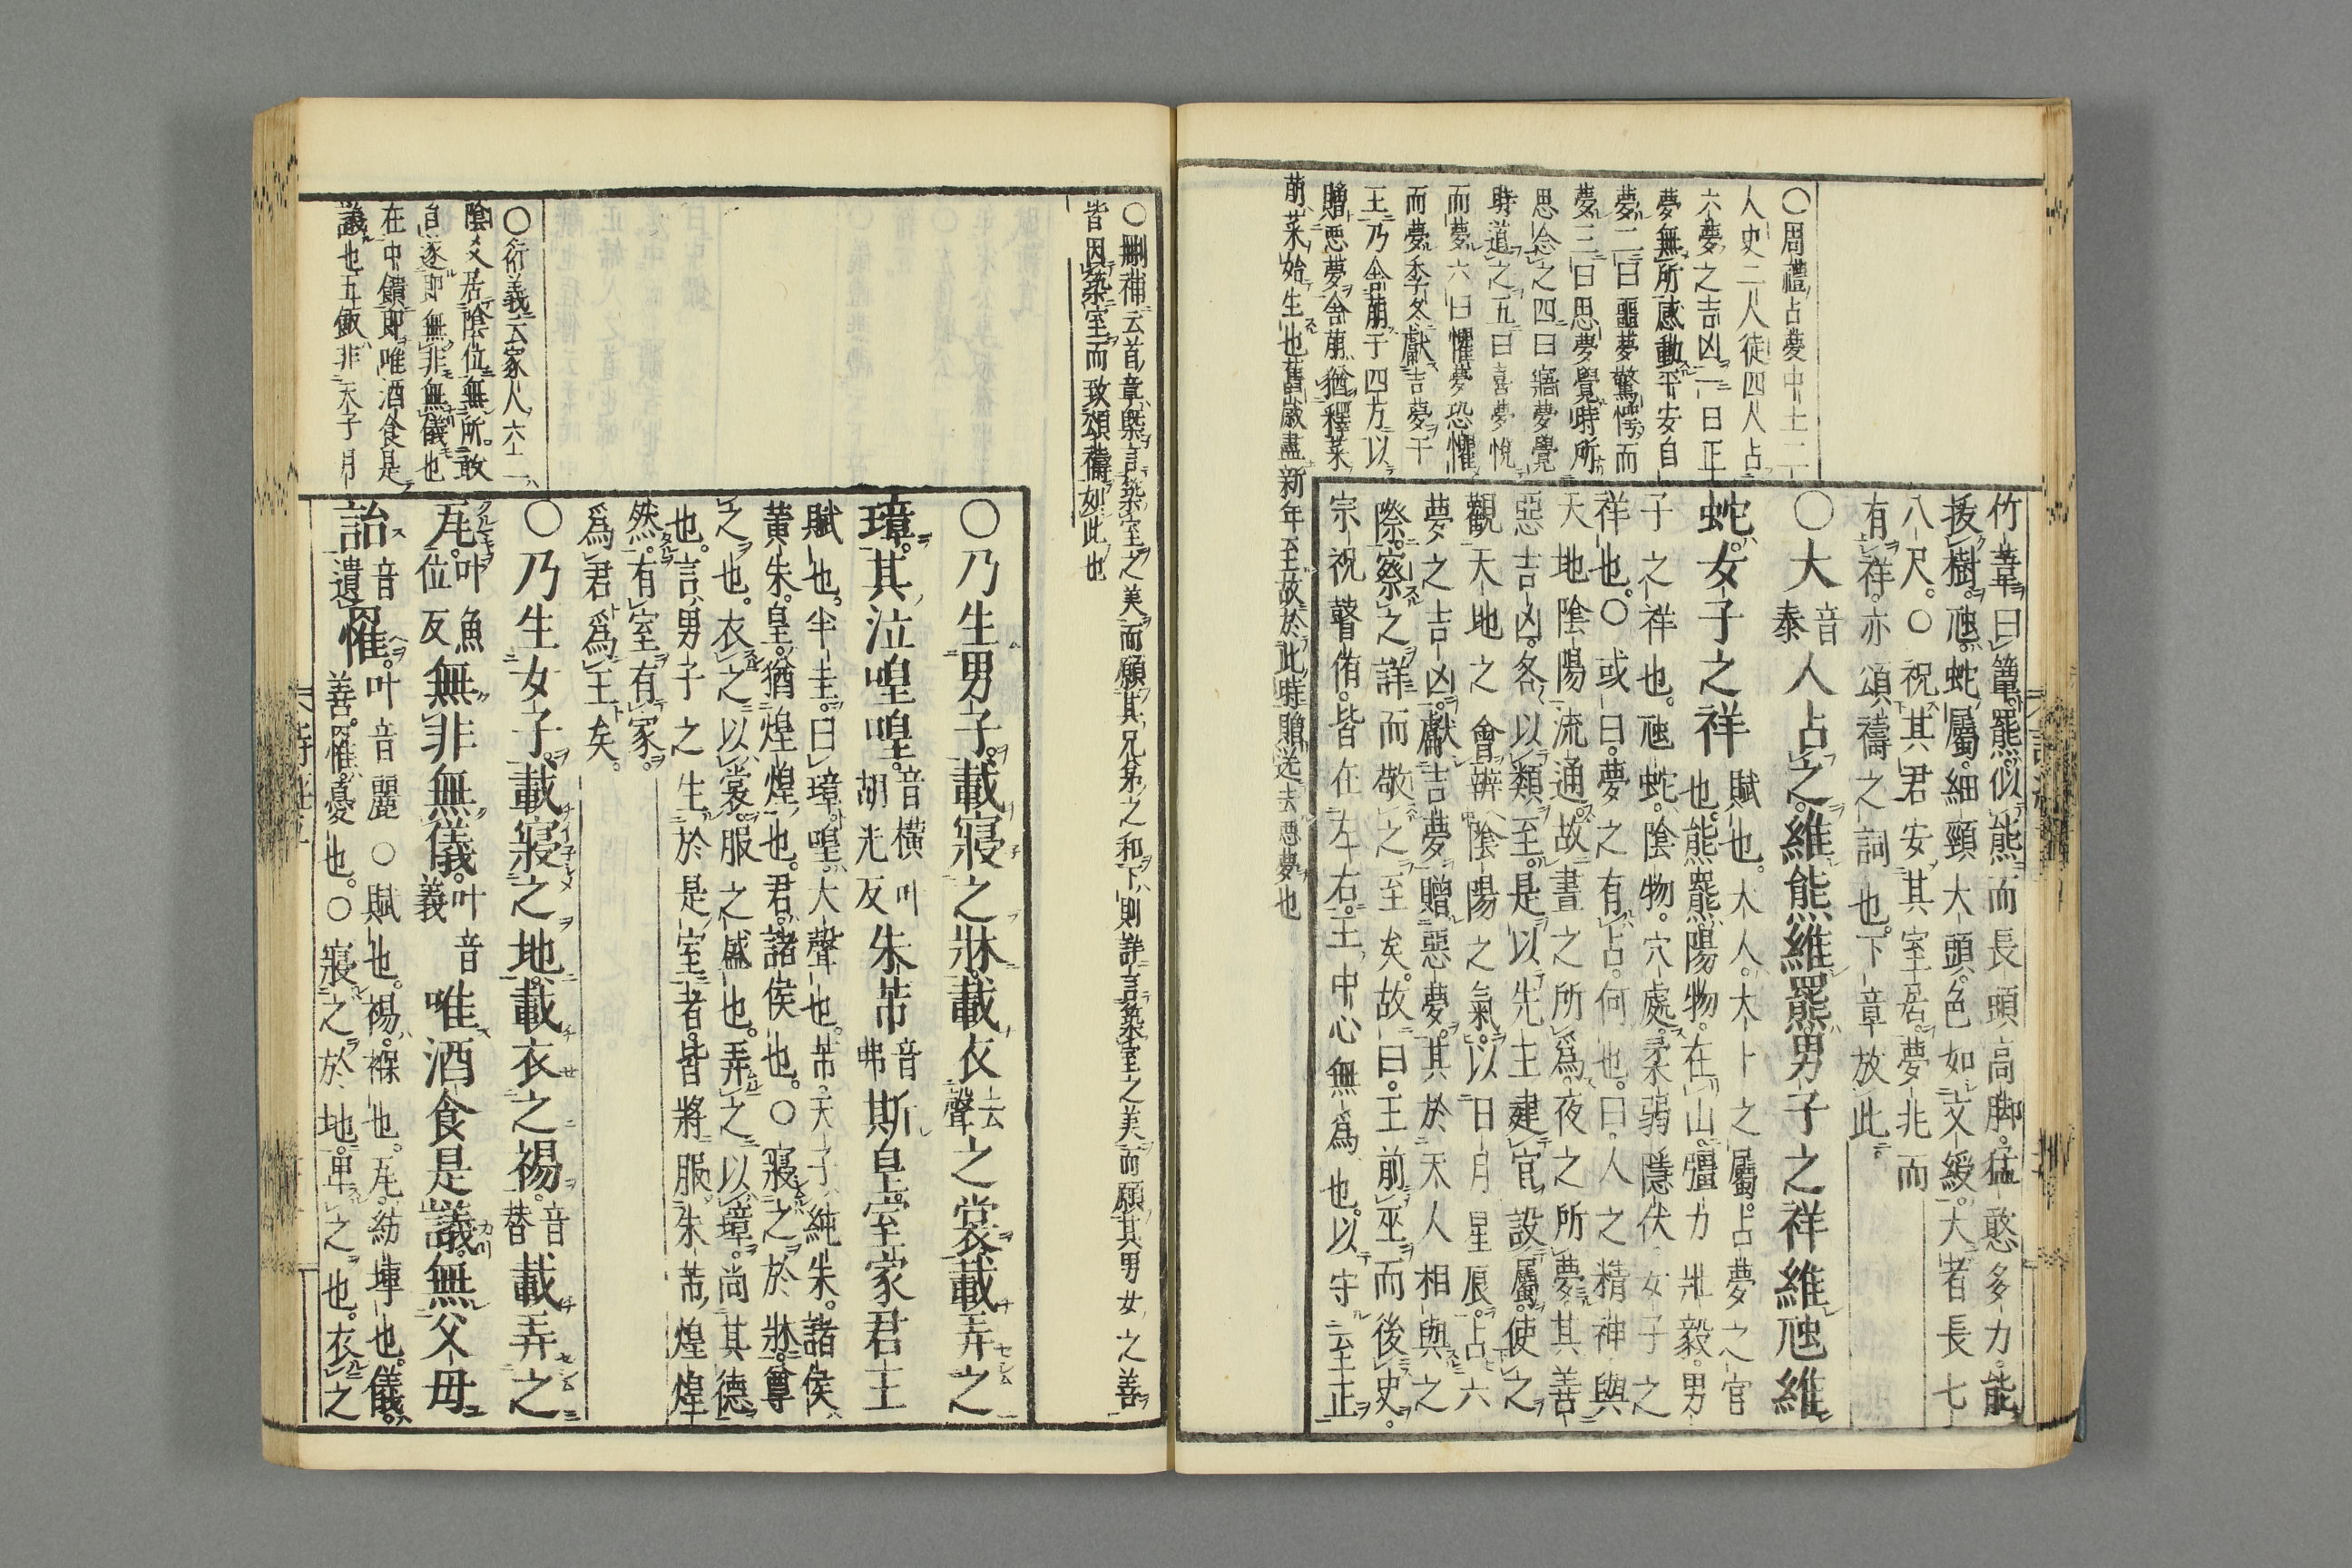 ○周禮占夢中士二
人史二人徒四人占
六夢之吉凶一曰正
夢無所感動平安自
夢二曰噩夢驚愕而
夢三曰思夢覺時所
思念之四曰寤夢覺
時道之五曰喜夢悅
而夢六曰懼夢恐懼
而夢季冬獻吉夢于
王乃舍萌于四方以
贈悪夢舍萌猶釋菜
萌菜始生也舊歳盡新年至故於此時贈送去悪夢也
竹葦曰簟。羆似熊而長頭高脚。猛憨多力。能
拔樹。虺。蛇屬。細頸大頭。色如文綬。大者長七
八尺。○祝其君安其室居。夢兆而
有祥。亦頌禱之詞也。下章放此。
○大音泰人占之。維熊維羆男子之祥維虺維
蛇。女子之祥賦也。大人。大卜之屬。占夢之官
也。熊羆陽物。在山。彊力壯毅。男
子之祥也。虺蛇。陰物。穴處。柔弱隱伏女子之
祥也。○或曰。夢之有占。何也。曰。人之精神與
天地陰陽流通。故晝之所爲。夜之所夢。其善
惡吉凶。各以類至。是以先王建官設屬。使之
觀天地之會辨陰陽之氣。以日月星辰。占六
夢之吉凶。獻吉夢。贈惡夢。其於天人相與之
際。察之詳而敬之至矣。故曰。王前巫而後史。
宗祝瞽侑。皆在左右。王中心無爲也。以守至正
○刪補云首章槩言築室之美而願其兄弟之和下則詳言築室之美而願其男女之善
皆因築室而致頌禱如此也
○乃生男子。載寢之牀。載衣去聲之裳。載弄之
璋。其泣喤喤。音横叶胡光反朱芾音弗斯皇。室家君王
賦也。半圭。曰璋。喤。大聲也。芾。天子純朱。諸侯
黃朱。皇。猶煌煌也。君。諸侯也。○寢之於牀。尊
之也。衣之以裳。服之盛也。弄之以璋。尚其德
也。言男子之生於是室者。皆將服朱芾煌煌
然。有室有家。
爲君爲王矣。
○乃生女子。載寢之地。載衣之裼。音替載弄之
瓦。叶魚位反無非無儀。叶音義唯酒食是議。無父母
詒音遺罹。叶音麗○賦也。裼。褓也。瓦。紡塼也。儀。
善。罹。憂也。○寢之於地。卑之也。衣之
○衍義云家人六二
陰爻居陰位無所敢
自遂即無非無儀也
在中饋即唯酒食是
議也五飯非天子月